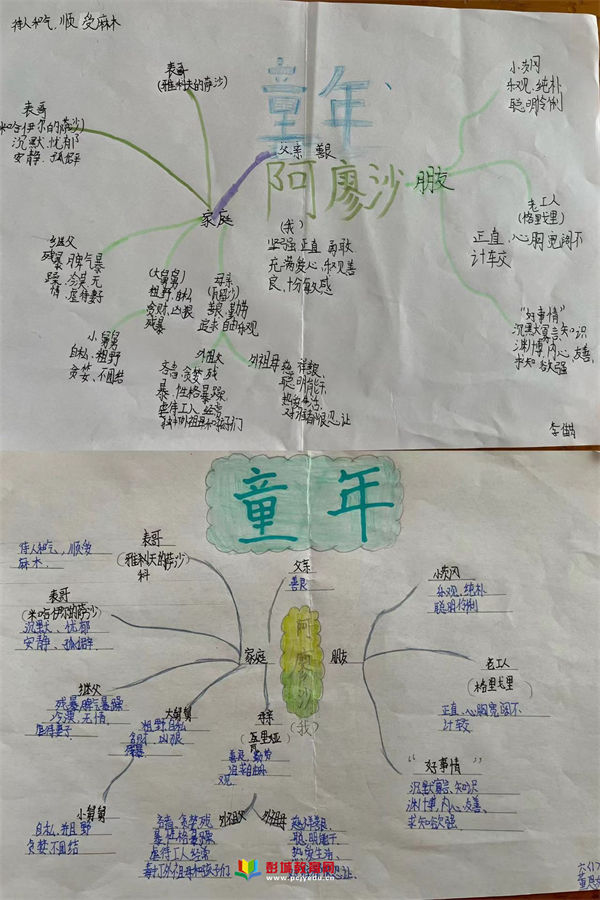 待人和气,顺受麻木
表哥
(雅科夫的萨沙)
表哥
(米哈伊尔的萨沙)
沉默、忧郁
安静、孤僻
童年
父亲 善良
阿廖沙
(我)
坚强 正直 勇敢
充满爱心、乐观善
良、十分敏感
家庭
继父
残暴、脾气暴
躁、冷漠、无
情、虐待妻子
(大舅舅)
粗野、自私
贪财、凶狠
残暴
母亲
善良、勤劳
追求自由乐观
小舅舅
自私、粗野
贪婪、不团结
外祖父
吝啬、贪婪、残
暴、性格暴躁、
虐待工人、经常
外祖母
慈祥善良、
聪明能干、
热爱生活、
对谁都很忍让
朋友
小茨冈
乐观、纯朴
聪明伶俐
老工人
(格里戈里)
正直、心胸宽阔不
计较
“好事情”
沉默寡言、知识
渊博,内心友善、
求知欲强
童年
待人和气、顺受
麻木
表哥
(雅科夫的萨沙)
科
表哥
(米哈伊尔的萨沙)
沉默、忧郁
安静、孤僻
继父
残暴脾气暴躁
冷漠、无情
虐待妻子
小舅舅
自私、并且野
贪婪不团结
大舅舅
粗野自私
贪财、凶狠
残暴
父亲
善良
家庭
阿廖沙
(我)
母亲
善良、勤劳
追求自由乐
观
外祖父
吝啬、贪婪残
暴、性格暴躁
虐待工人经常
毒打外祖母和孩子们
外祖母
慈祥善良、
聪明能干、
热爱生活、
朋友
小茨冈
乐观、纯朴
聪明伶俐
老工人
(格里戈里)
正直、心胸宽阔不
计较
“好事情”
沉默寡言、知识
渊博,内心友善、
求知欲强
彭城教育网
www.pcjyedu.cn